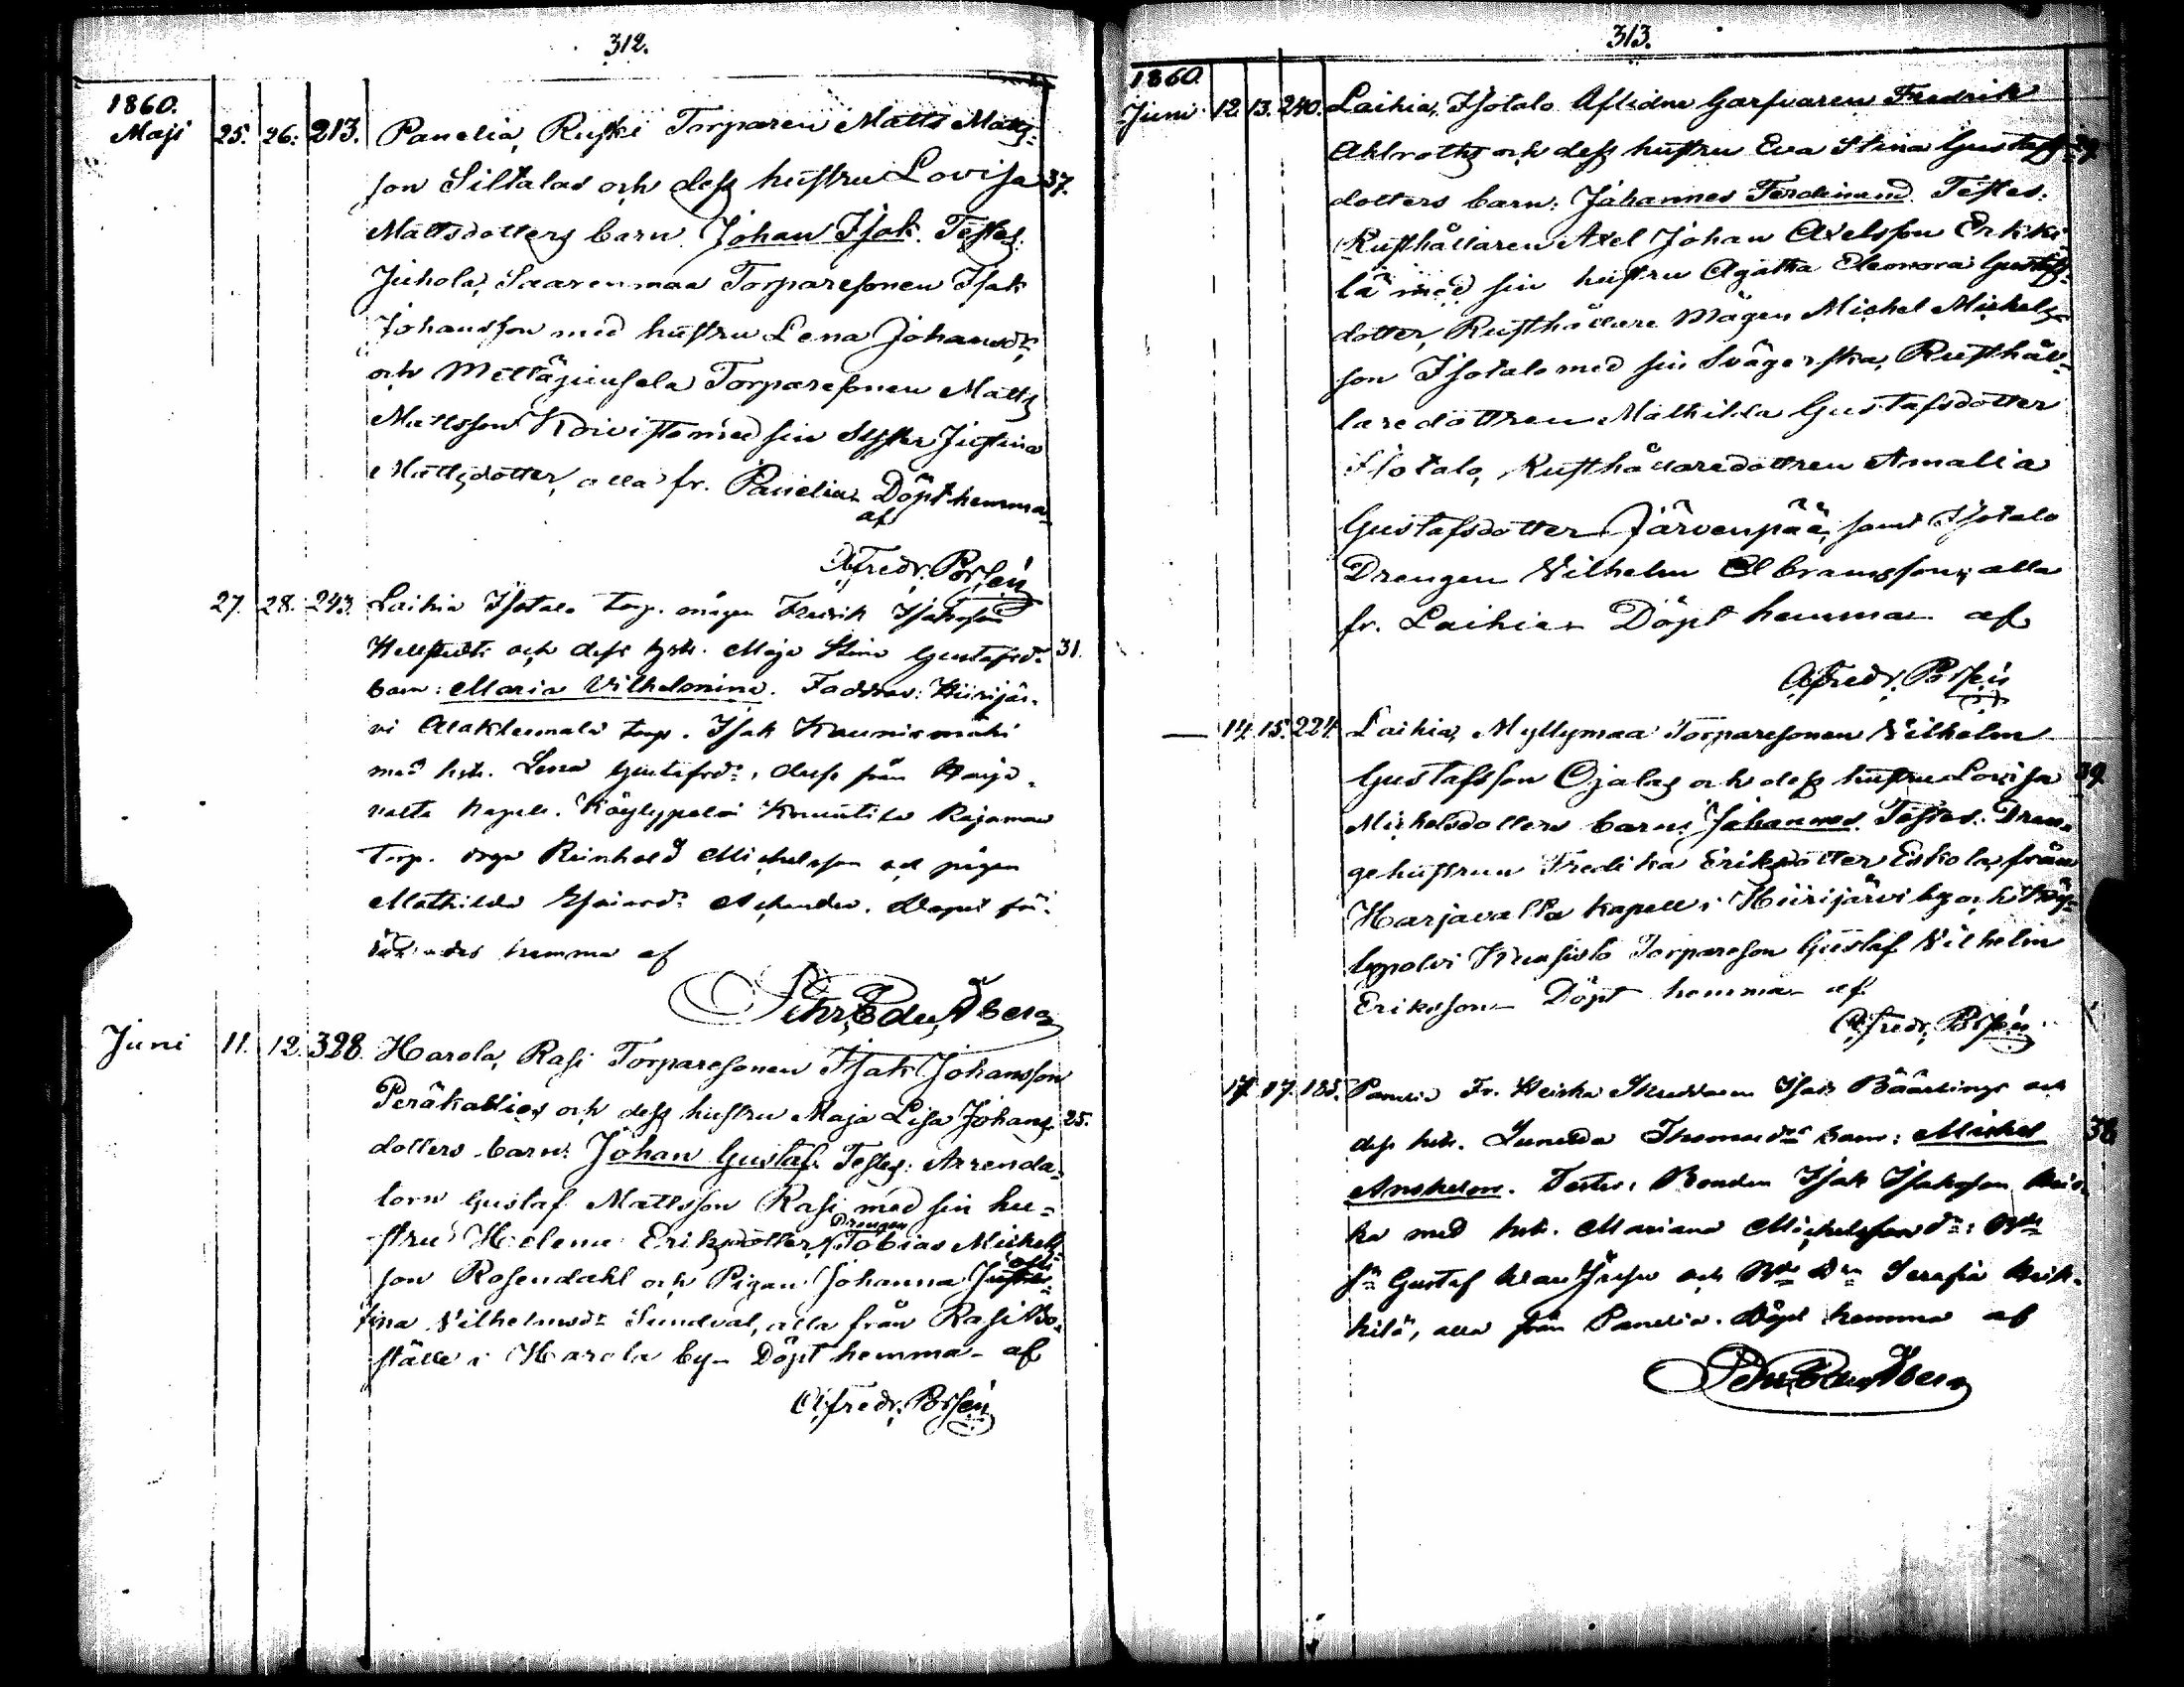 312.
1860.
Maji 25. 26. 213. Panelia, Ruski Torparen Matts Matts-
son Siltalas och dess hustru Lovisa 37.
Mattsdotters barn Johan Isak. Testes:
Juhola, Saarenmaa Torparesonen Isak
Johansson med hustru Lena Johansdr
och Torparesonen Matts
Mattsson Koivisto med sin Syster Justina
Mattsdotter, alla fr. Panelia. Döpt hemma
af
Alfredr. Porsén
27. 28. 243. Laihia Isotalo Torp. mågen Fredrik Isaksson
Hellstedts och dess hstr. Maja Stina Gustafsdr 31.
barn: Maria Vilhelmina. Faddrar: Hiirijär-
vi torp. Isak Kaunismäki
med hstr. Lena Gustafsdr, dessa från Harja-
valta Kapell. Köylypolvi Knuutila Rajamaa
Torp. drgn Reinhold Michelsson och pigan
Mathilda
hemma af
Pehr Edu. Åberg
Juni 11. 12. 328. Harola, Rasi Torparesonen Isak Johansson
Peräkallios och dess hustru Maja Lisa Johans- 25.
dotters barn: Johan Gustaf. Testes: Arrenda-
torn Gustaf Mattsson Rasi med sin hu-
stru Helena Eriksdotter, Drengen Tobias Michels-
son Rosendahl och Pigan Johanna
Vilhelmsdr Sundval, alla från Rasi Bo-
ställe i Harola by. Döpt hemma af
Alfredr. Porsén
313.
1860.
Juni 12. 13. 240. Laihia, Isotalo Aflidne Garfvaren Fredrik
Ahlroths och dess hustru Eva Stina Gustafs- 29.
dotters barn: Johannes Ferdinand. Testes:
Rusthållaren Axel Johan Axelsson Erkki-
lä med sin hustru Agatha Eleonora Gustafs-
dotter, Rusthållare Mågen Michel Michels-
son Isotalo med sin Svägerska, Rusthål-
laredottren Mathilda Gustafsdotter
Isotalo, Rusthållaredottren Amalia
Gustafsdotter Järvenpää, samt Isotalo
Drengen Vilhelm Abramsson; alla
fr. Laihia. Döpt hemma af
Alfredr. Porsén
— 14. 15. 224. Laihia, Myllymaa Torparesonen Vilhelm
Gustafsson Ojalas och dess hustru Lovisa 39.
Michelsdotters barn: Johannes. Testes: Dren-
gehustrun Fredika Eriksdotter Eskola, från
Harjavalta Kapell i Hiirijärvi by och Köy-
lypolvi Kuusisto Torpareson Gustaf Vilhelm
Eriksson. Döpt hemma af
Alfredr. Porsén
17. 17. 185. Panelia Fr. Heikka Skräddaren Isak Bäärlings och
dess hstr. Lunetta Thomasdrs barn: Michel 38
Anshelm. Testes: Bonden Isak Isaksson Hei-
ka med hstr. Mariana Michelsdr:
Gustaf och Serafia Heik-
kilä, alla från Panelia. Döpt hemma af
Pehr Edu. Åberg